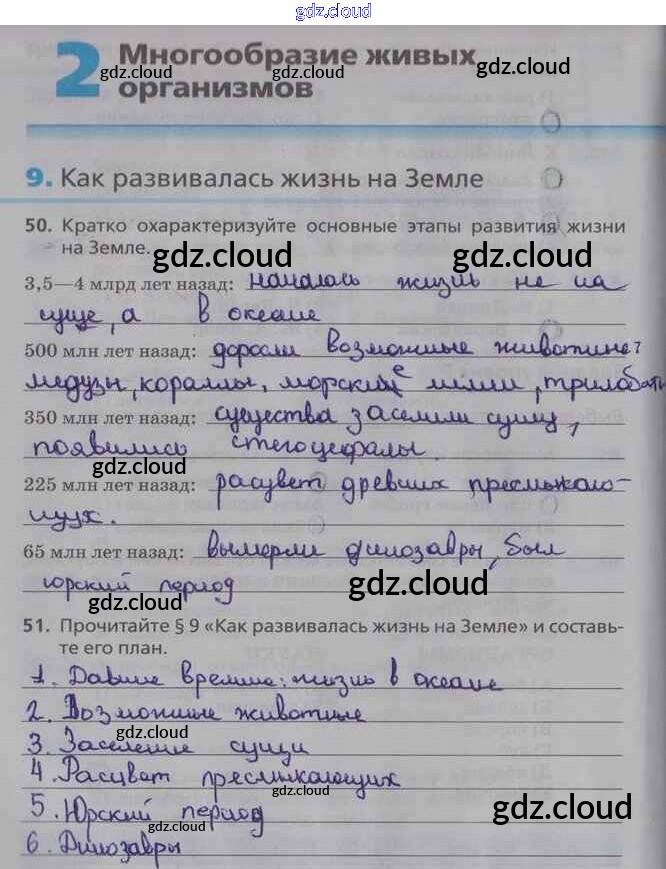 gdz.cloud
2 Многообразие живых
gdz.cloud gdz.cloud
организмов
9. Как развивалась жизнь на Земле
50. Кратко охарактеризуйте основные этапы развития жизни
на Земле.
gdz.cloud gdz.cloud
3,5—4 млрд лет назад: началась жизнь не на
суще, а в океане
500 млн лет назад: возможные животине:
медузы, кораллы, морские лилии,
350 млн лет назад: существа заселили сушу,
появились стегоцефалы.
gdz.cloud
225 млн лет назад: расцвет древних пресмыкаю-
щихх.
gdz.cloud
65 млн лет назад: вымерли динозавры, был
юрский период
gdz.cloud gdz.cloud
51. Прочитайте § 9 «Как развивалась жизнь на Земле» и составь-
те его план.
1. времена: жизнь в океане
2. Возможные животные
gdz.cloud
3. Заселение суши
4. Расцвет пресмыкающихх
gdz.cloud
5. Юрский период
gdz.cloud gdz.cloud
6. Динозавры